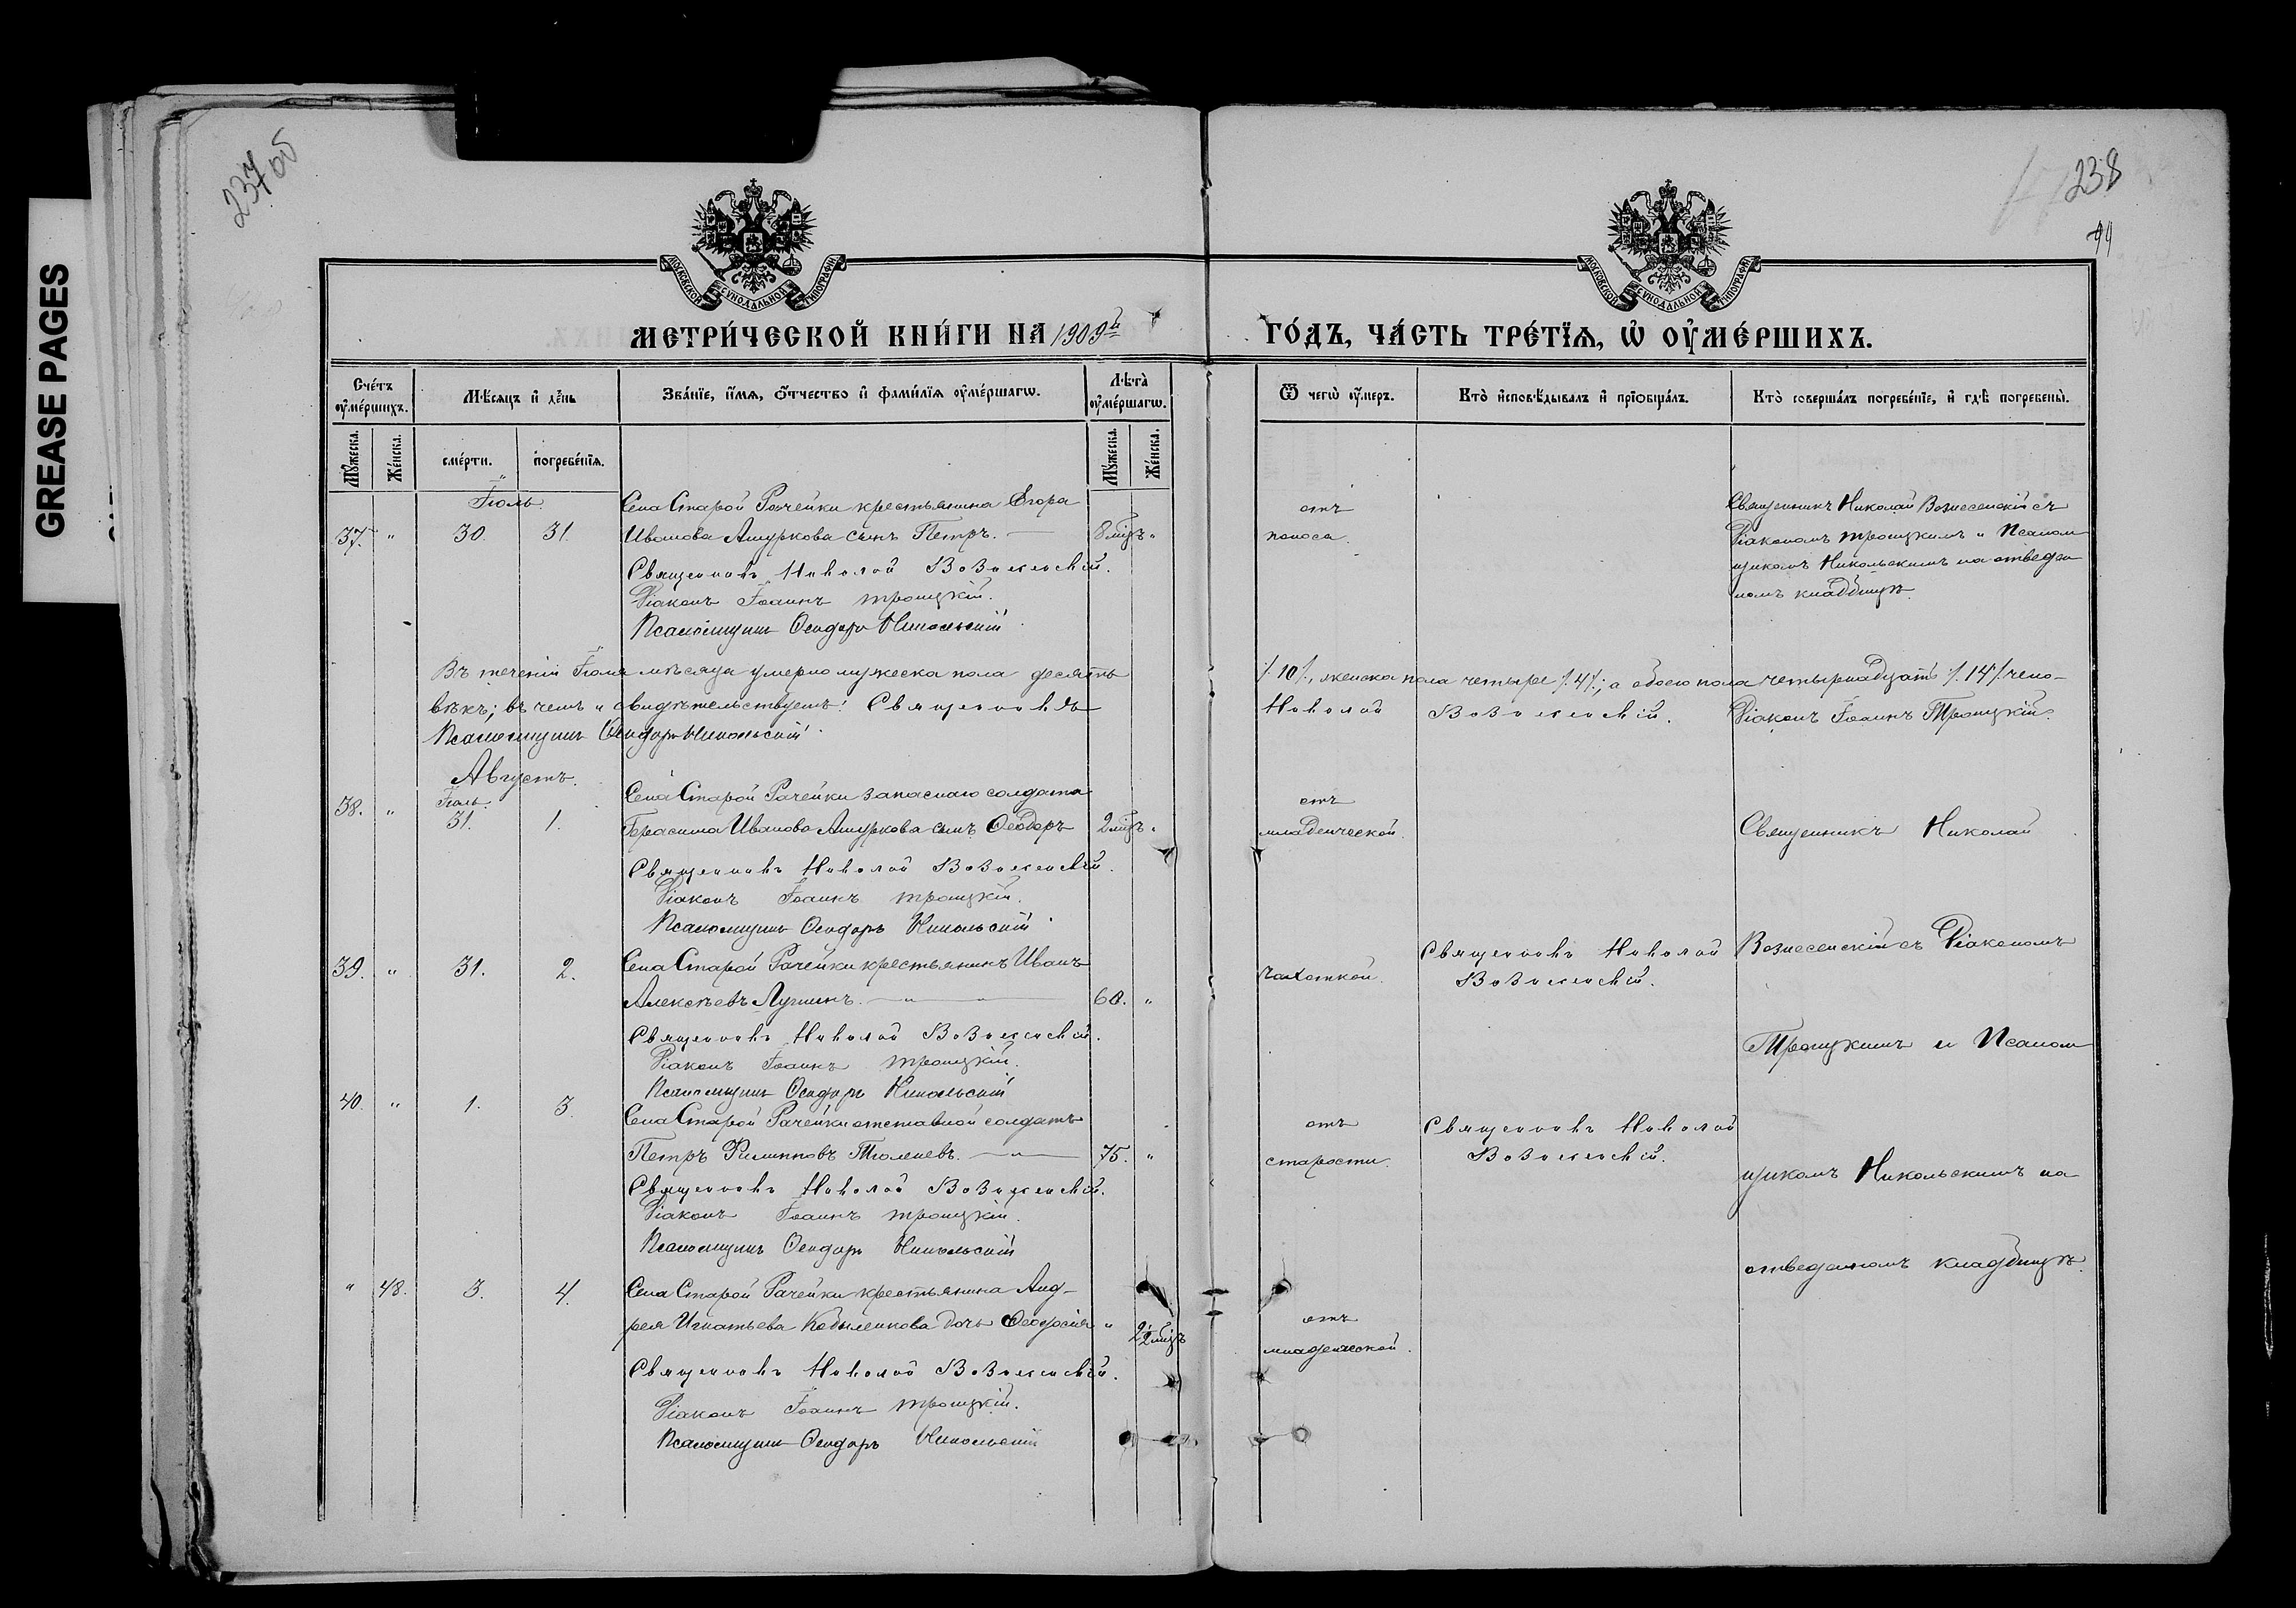 237 об
238
99
GREASE PAGES
МОСКОВСКОЙ СѴНОДАЛЬНОЙ ТИПОГРАФІИ
МОСКОВСКОЙ СѴНОДАЛЬНОЙ ТИПОГРАФІИ
МЕТРИ́ЧЕСКОЙ КНИ́ГИ НА 1909й
ГО́ДЪ, ЧА́СТЬ ТРЕ́ТЇѦ, Ѡ҆ ОУ҆МЕ́РШИХЪ.
Сче́тъ оу҆ме́ршихъ.
Мѣ́сяцъ и҆ де́нь
Зва́нїе, и҆́мѧ, ѻ҆́тчество и҆ фами́лїѧ оу҆ме́ршагѡ.
Лѣ́та̀ оу҆ме́ршагѡ.
Ѿ чегѡ̀ оу҆́меръ.
Кто̀ и҆сповѣ́дывалъ и҆ прїѻбща́лъ.
Кто̀ соверша́лъ погребе́нїе, и҆ гдѣ̀ погребены̀.
Мꙋ́жеска.
Же́нска.
сме́рти.
погребе́нїѧ.
Мꙋ́жеска.
Же́нска.
Іюль.
Села Старой Рачейки крестьянина Егора
37. " 30. 31. Иванова Ашуркова сынъ Петръ. 8 мѣс. "
Священникъ Николай Вознесенскій.
Діаконъ Іоаннъ Троицкій.
Псаломщикъ Ѳеодоръ Никольскій
отъ
поноса.
Священникъ Николай Вознесенскій съ
Діакономъ Троицкимъ и Псалом
щикомъ Никольскимъ на отведен
номъ кладбищѣ.
Въ теченіи Іюля мѣсяца умерло мужеска пола десять /.10/., женска пола четыре /.4/.; а обоего пола четырнадцать /.14/. чело-
вѣкъ; въ чемъ и свидѣтельствуемъ: Священникъ Николай Вознесенскій. Діаконъ Іоаннъ Троицкій.
Псаломщикъ Ѳеодоръ Никольскій
Августъ.
Іюль. Села Старой Рачейки запаснаго солдата
38. " 31. 1. Герасима Иванова Ашуркова сынъ Ѳеодоръ 2 мѣс. "
Священникъ Николай Вознесенскій.
Діаконъ Іоаннъ Троицкій.
Псаломщикъ Ѳеодоръ Никольскій
отъ
младенческой.
Священникъ Николай
39. " 31. 2. Села Старой Рачейки крестьянинъ Иванъ
Алексѣевъ Лушинъ. 60. "
Священникъ Николай Вознесенскій.
Діаконъ Іоаннъ Троицкій.
Псаломщикъ Ѳеодоръ Никольскій
Чахоткой.
Священникъ Николай
Вознесенскій.
Вознесенскій съ Діакономъ
Троицкимъ и Псалом
40. " 1. 3. Села Старой Рачейки отставной солдатъ
Петръ Филипповъ Тюленевъ. 75. "
Священникъ Николай Вознесенскій.
Діаконъ Іоаннъ Троицкій.
Псаломщикъ Ѳеодоръ Никольскій
отъ
старости.
Священникъ Николай
Вознесенскій.
щикомъ Никольскимъ на
отведеномъ кладбищѣ.
" 48. 3. 4. Села Старой Рачейки крестьянина Анд-
рея Игнатьева Кобыленкова дочь Ѳеодосія " 2½ мѣс.
Священникъ Николай Вознесенскій.
Діаконъ Іоаннъ Троицкій.
Псаломщикъ Ѳеодоръ Никольскій
отъ
младенческой.